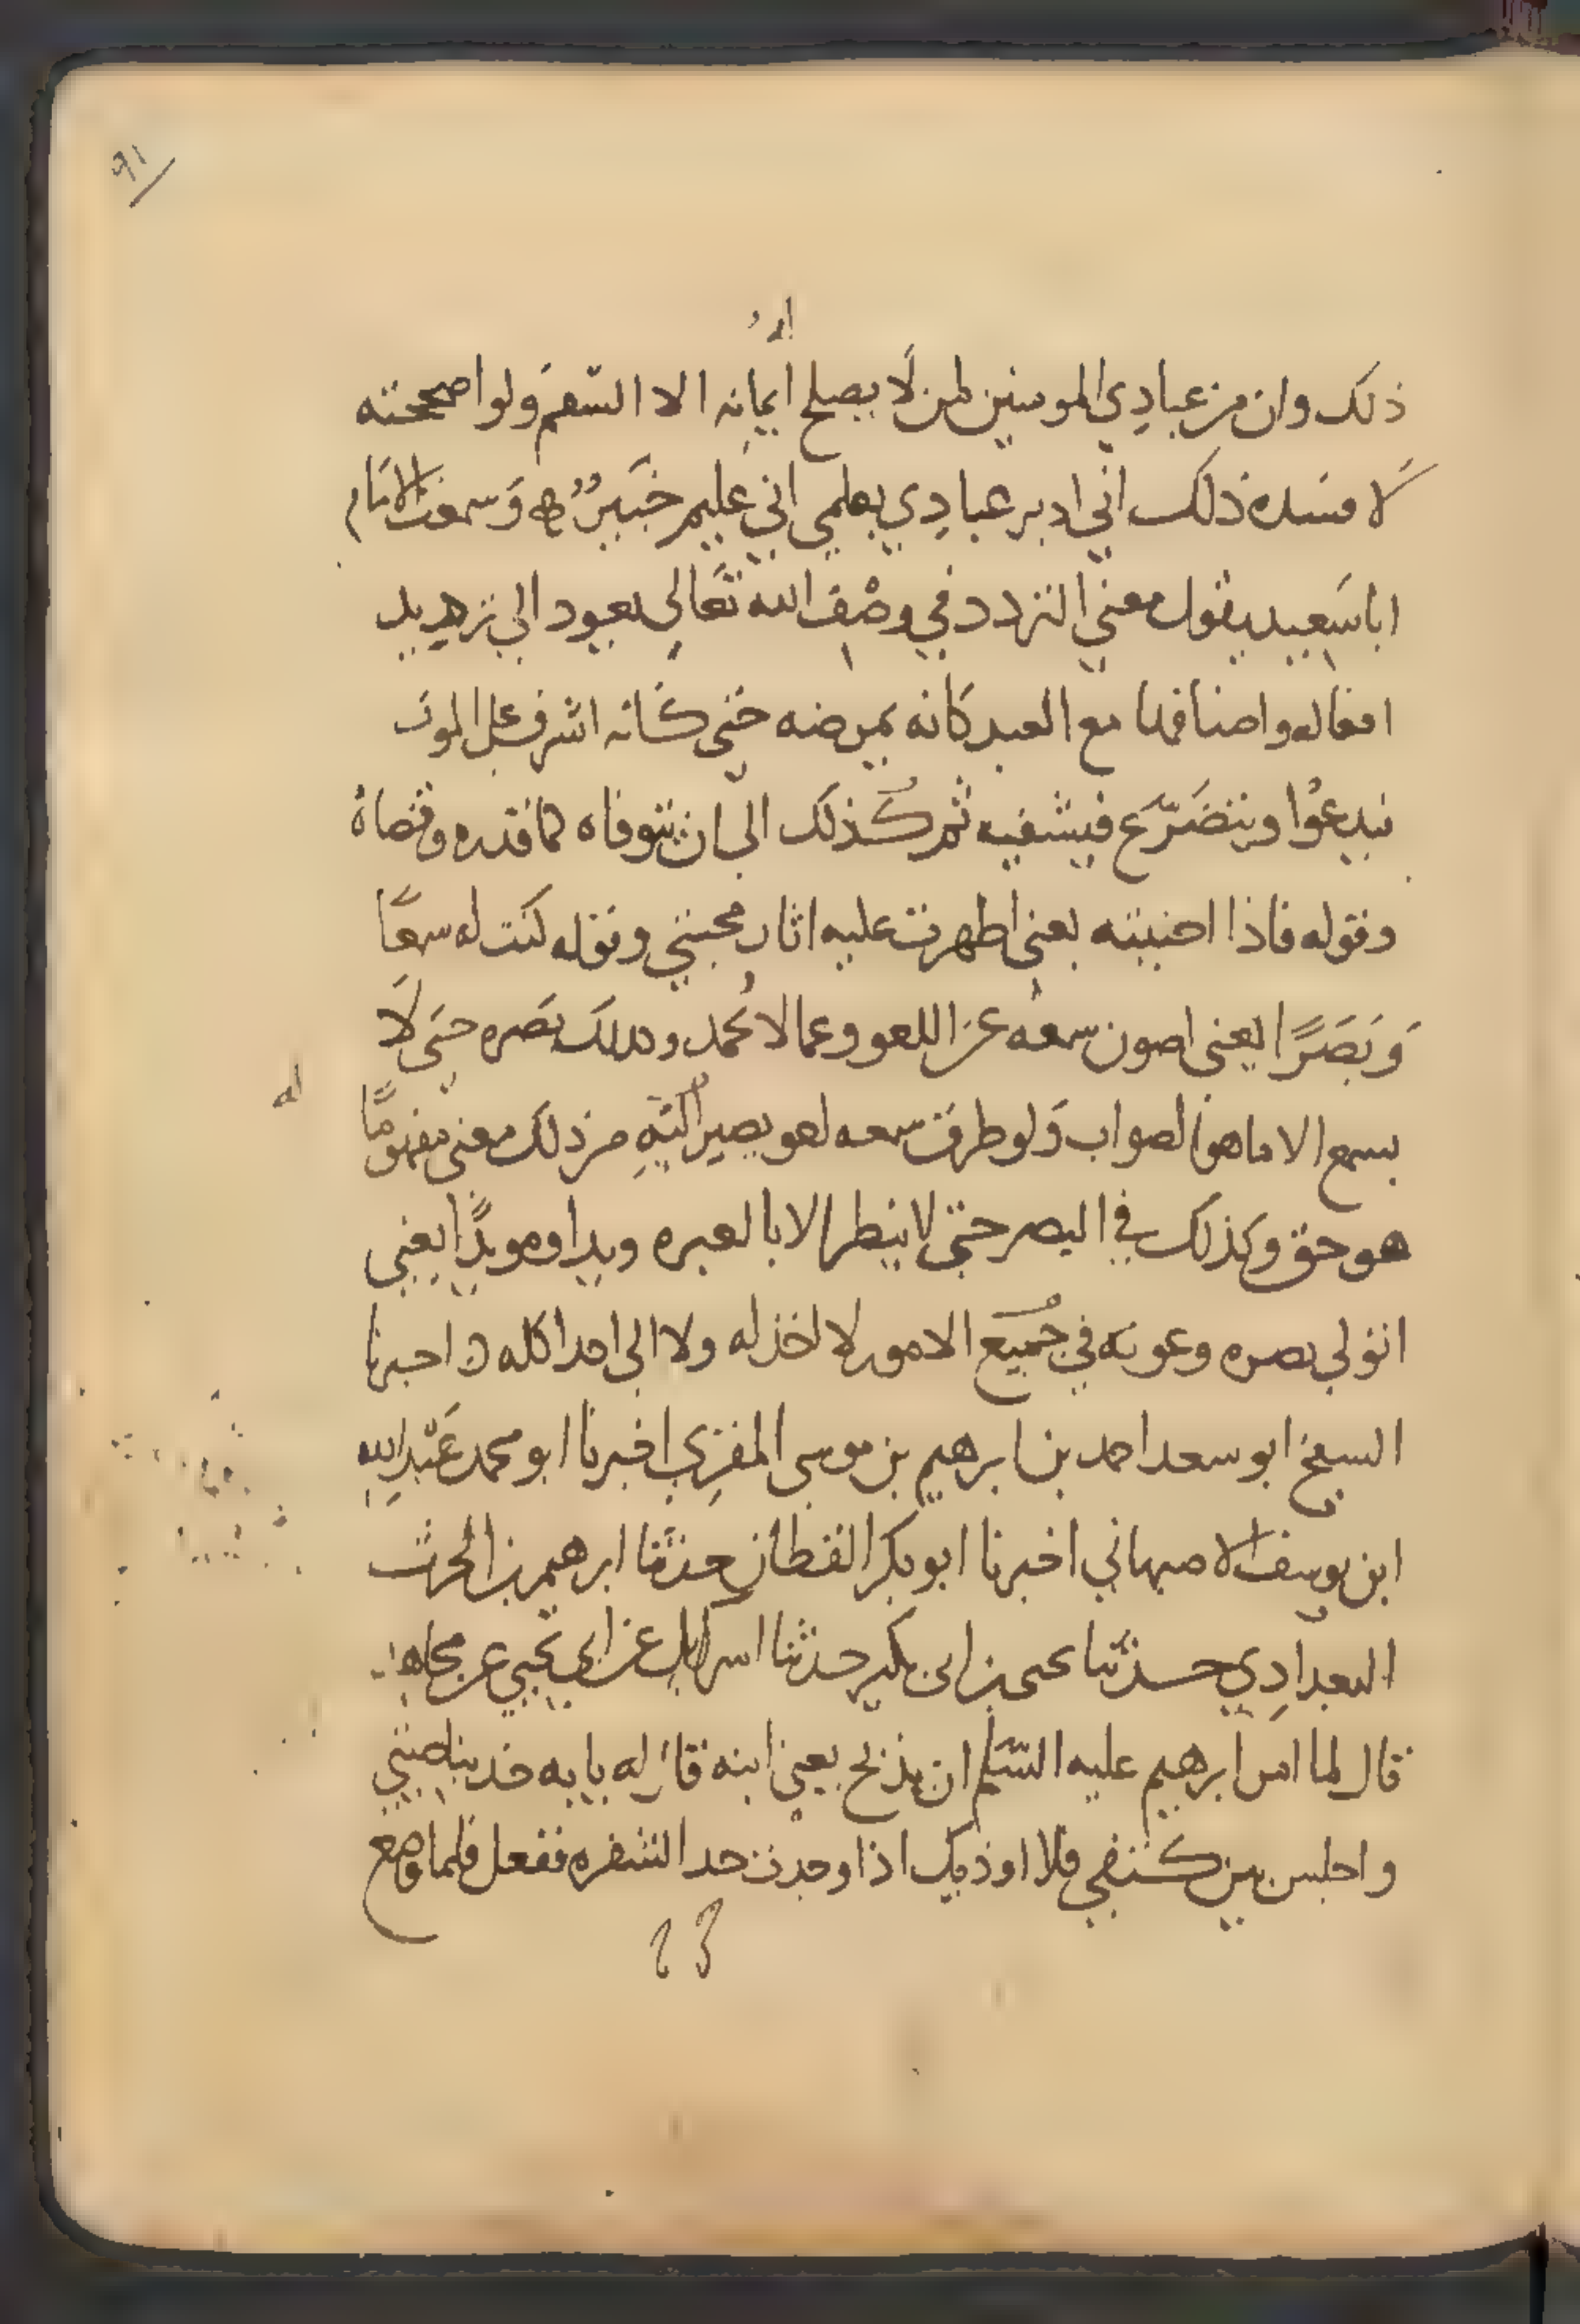 ٩١
له
ذلك وان من عبادي المومنين لمن لا يصلح ايمانه الا السقم ولو اصححته
لافسده ذلك اني ادبر عبادي بعلمي اني عليم خبير ه وسمعت الامام
ابا سعيد يقول معني التردد في وصف الله تعالي يعود الي ترديد
افعاله واصنافها مع العبد كانه يمرضه حتي كانه اشرف علي الموت
فيدعوا ويتضرع فيشفيه ثم كذلك الي ان يتوفاه كما قدره وقضاه
وقوله فاذا احببته يعني اظهرت عليه اثار محبتي وقوله كنت له سمعًا
وَبَصَرًا يعني اصون سمعه عن اللغو وعما لا يحمد وكذلك بصره حتي لا
يسمع الا ما هو الصواب ولو طرق سمعه لغو يصير اليه من ذلك معني مفهومًا
له
هو حق وكذلك في البصر حتي لا ينظر الا بالعبره ويدا ومويدًا يعني
اتولي نصره وعونه في جميع الامور لا اخذله ولا الي احد اكله اخبرنا
الشيخ ابو سعد احمد بن ابرهيم بن موسي المقري اخبرنا ابو محمد عبد الله
ابن يوسف الاصبهاني اخبرنا ابو بكر القطان حدثنا ابرهيم بن الحرث
البغدادي حدثنا يحيي بن ابي بكير حدثنا اسرايل عن ابي يحيي عن مجاهد
قال لما امر ابرهيم عليه السلم ان يذبح يعني ابنه قال له يابه خذ بناصيتي
واجلس بين كتفي فلا اوذيك اذا وجدت حد الشفره ففعل فلما وضع